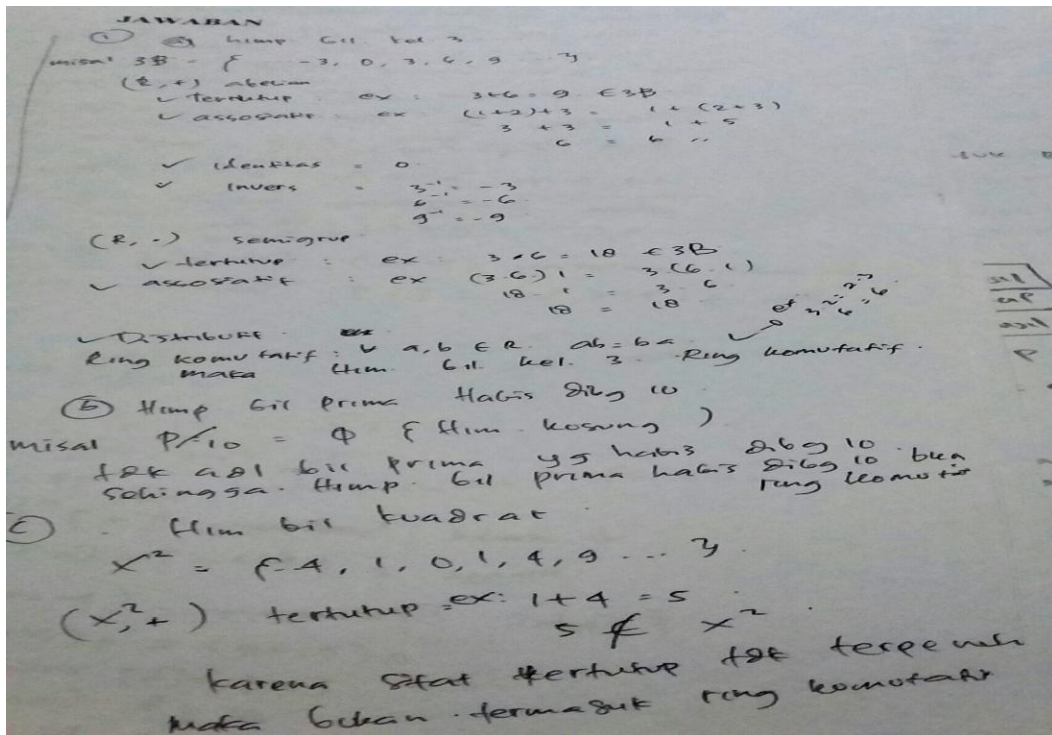 JAWABAN
① a) himp bil. kel 3
misal 3B = { -3, 0, 3, 6, 9 }
(R, +) abelian
✓ Tertutup ex : 3+6 = 9 ∈ 3B
✓ assosiatif ex (1+2)+3 = 1 + (2+3)
3 + 3 = 1 + 5
6 = 6
✓ identitas = 0
✓ invers = 3⁻¹ = -3
6⁻¹ = -6
9⁻¹ = -9
(R, ·) semigrup
✓ tertutup : ex 3·6 = 18 ∈ 3B
✓ assosiatif : ex (3·6) 1 = 3 (6·1)
18 · 1 = 3 · 6
18 = 18
✓ Distributif
Ring komutatif : ∀ a, b ∈ R. ab = ba ex 3·2 = 2·3
6 = 6
maka Him. bil. kel. 3 Ring komutatif.
ⓑ Himp bil prima Habis dibg 10
misal P/10 = Φ { Him kosong }
tdk ada bil prima yg habis dibg 10
sehingga. Himp. bil prima habis dibg 10 bkn
ring komutatif
ⓒ Him bil kuadrat
x² = {-4, 1, 0, 1, 4, 9 ... }
(x², +) tertutup = ex: 1 + 4 = 5
5 ∉ x²
karena sifat tertutup tdk terpenuhi
maka bukan termasuk ring komutatif